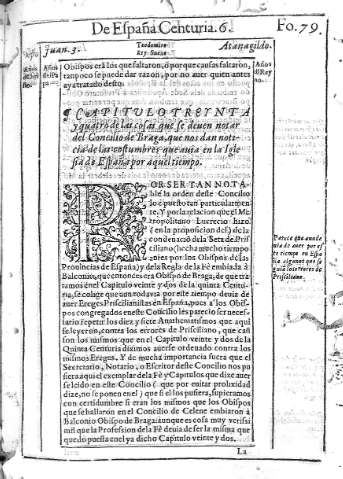 De España Centuria. 6.
Fo. 79.
Juan. 3.
Teodomiro
Rey Sueuo
Atanagildo.
Obispos erã los que faltaron, ò porque causas faltaron,
tanpoco se puede dar razon, por no auer quien antes
aya tratado desto.
¶ CAPITULO TREYNTA
y quatro de las cosas que se deuen notar
del Concilio de Braga, que nos dan noti-
cia de las costumbres que auia en la Igle
sia de España por aquel tiempo.
POR SER TAN NOTA
ble la orden deste Concilio
lo è puesto tan particularmen
te. Y por la relacion que el Me
tropolitano Lucrecio hizo
(en la proposicion del) de la
condenaciõ de la Seta de Pris
ciliano (hecha mucho tiempo
antes por los Obispos de las
Prouincias de España) y de la Regla de la Fè embiada à
Balconio, que entonces era Obispo de Braga, de que tra
tamos en el Capitulo veinte y dos de la quinta Centu-
ria, se colige que aun todavia por este tiempo deuia de
auer Ereges Priscilianistas en España, pues a los Obis-
pos congregados en este Concilio les parecio ser necesa-
rio repetir los diez y siete Anathematismos que aqui
se leyeron, contra los errores de Prisciliano, que casi
son los mismos que en el Capitulo veinte y dos de la
Quinta Centuria diximos auerse ordenado contra los
mismos Ereges. Y de mucha importancia fuera que el
Secretario, Notario, o Escritor deste Concilio nos pu
siera aqui el exemplar de la Fè y Capitulos que dize auer
se leido en este Concilio (que por euitar prolixidad
dize, no se ponen en el) que si el los pusiera, supieramos
con certidumbre si eran los mismos que los Obispos
que se hallaron en el Concilio de Celene embiaron à
Balconio Obispo de Braga: aunque es cosa muy verisi
mil que la Profesion de la Fè deuia de ser la misma que
quedò puesta en el ya dicho Capitulo veinte y dos.
La
Parece que aun de
uia de auer por es
te tiempo en Espa
ña algunos que se
guia los errores de
Prisciliano.